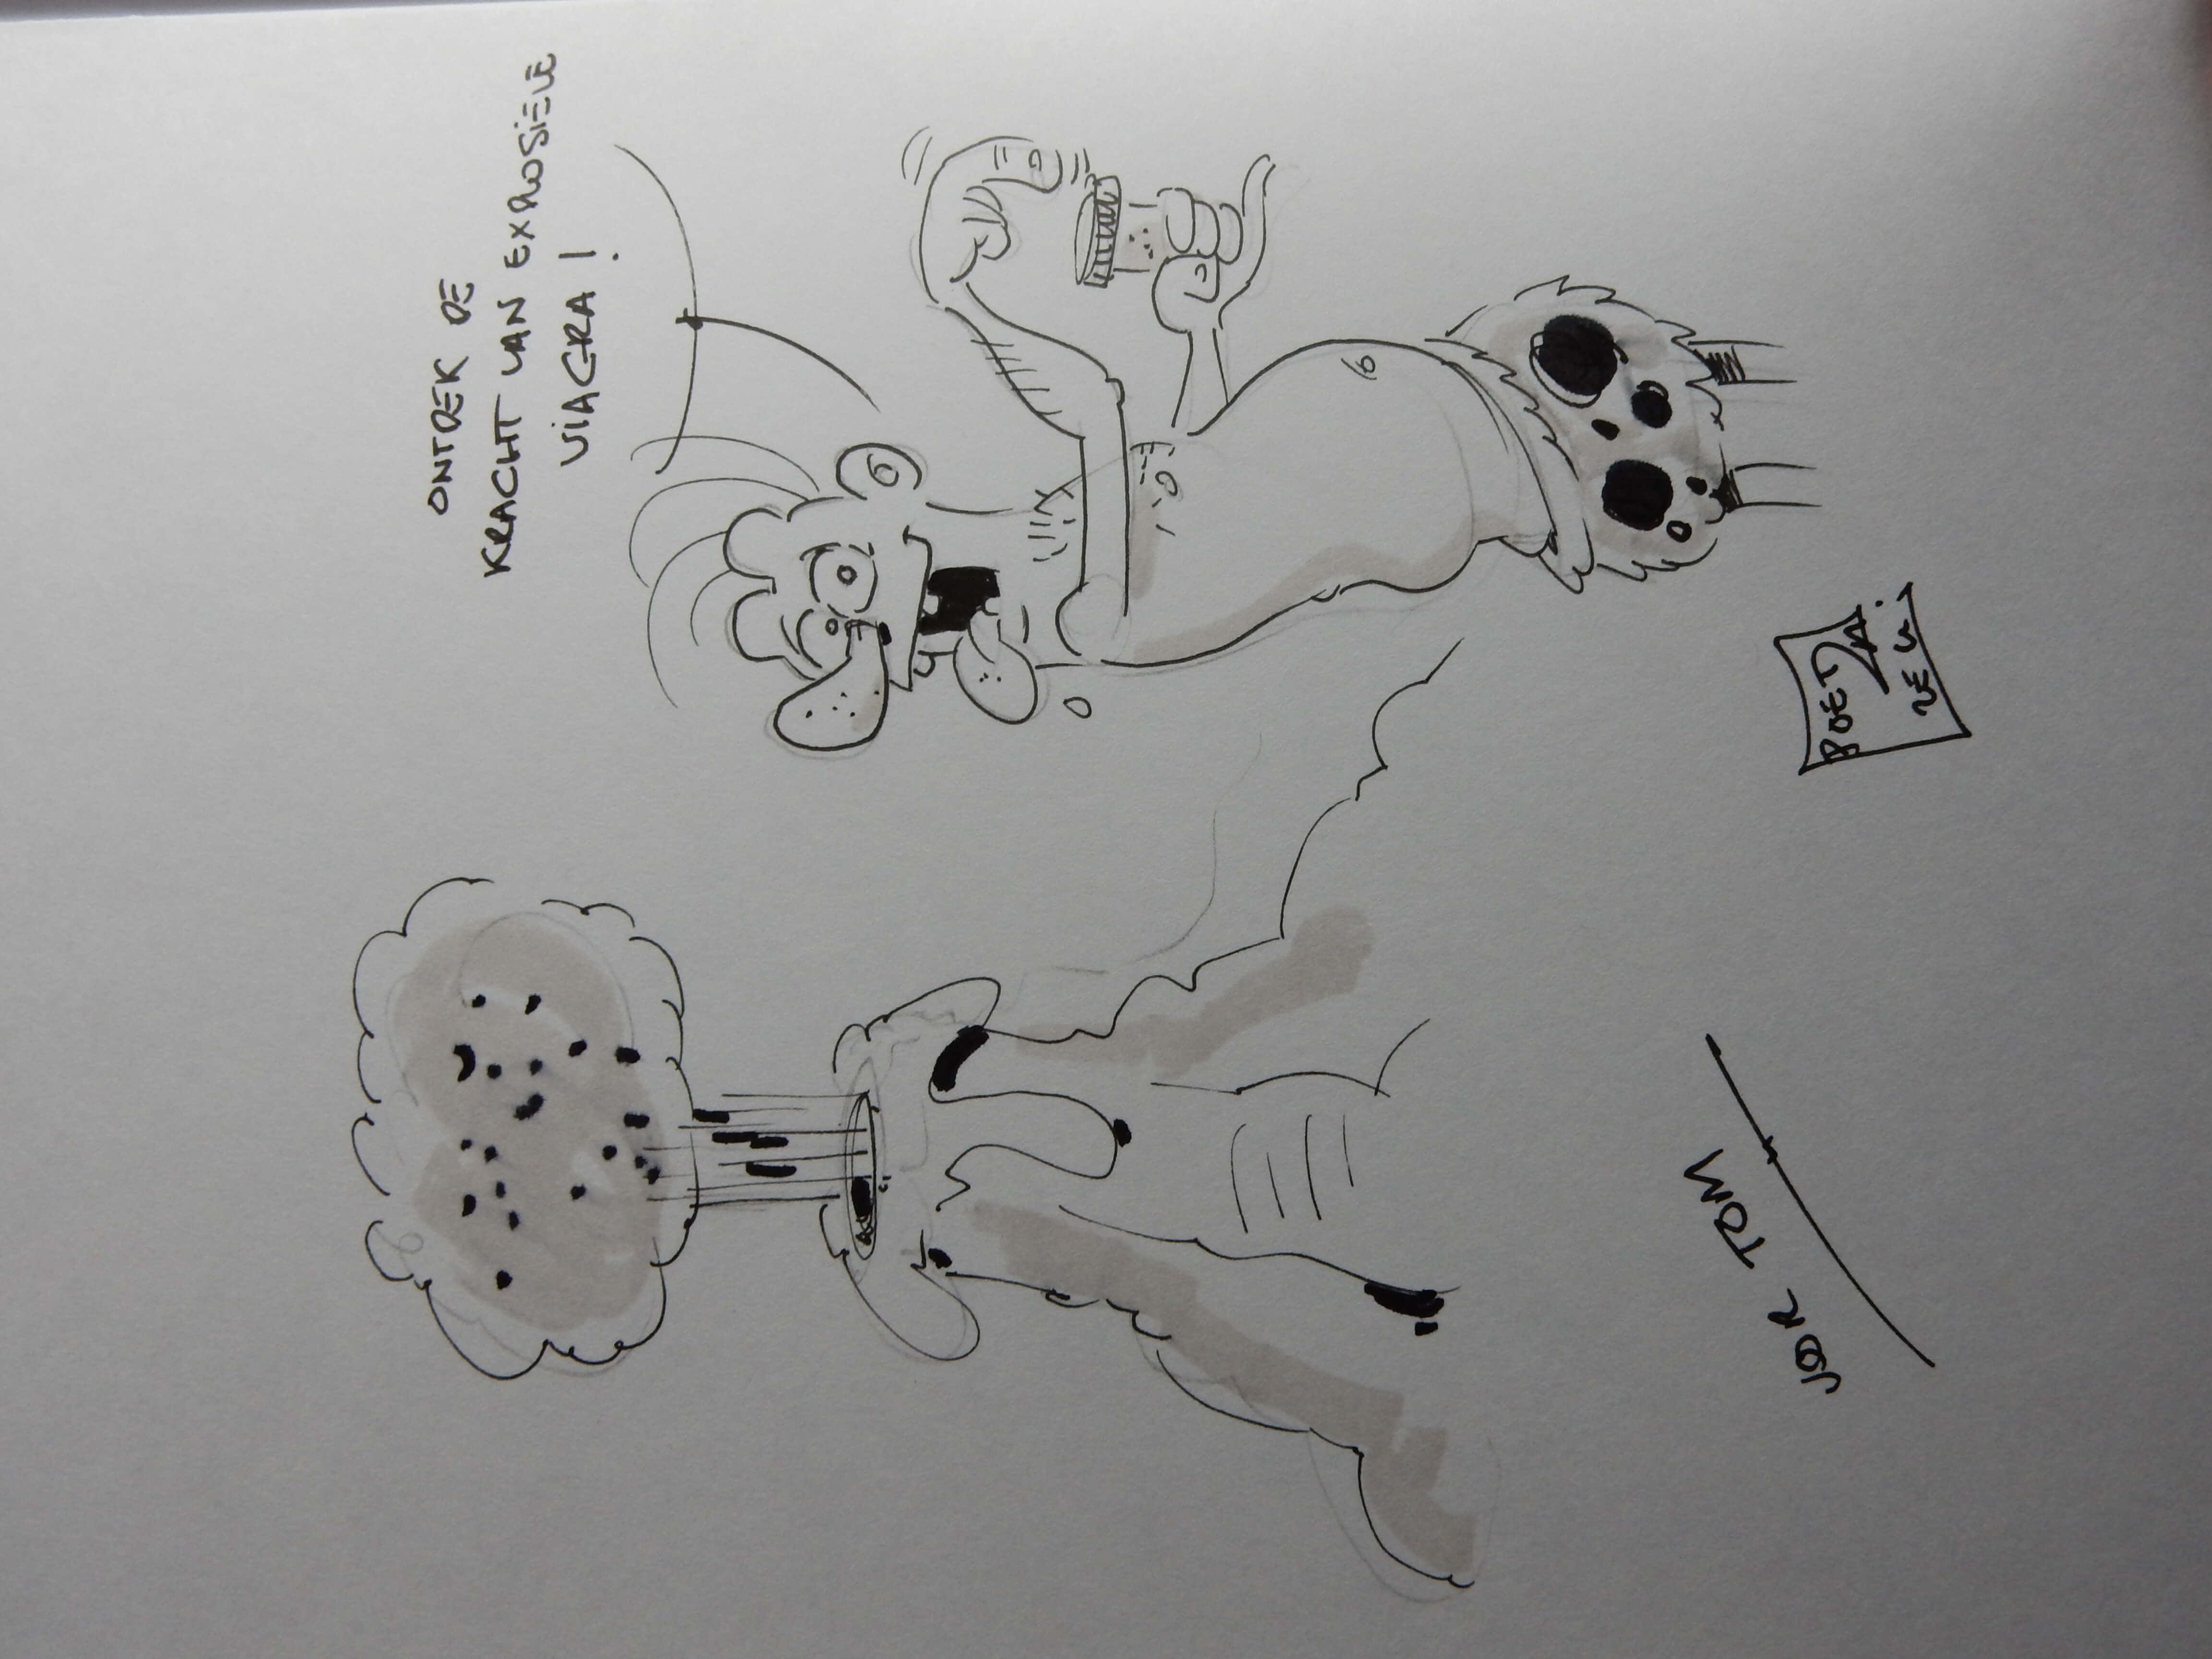 ONTDEK DE
KRACHT VAN EXPLOSIEVE
VIAGRA !
VOOR TOM